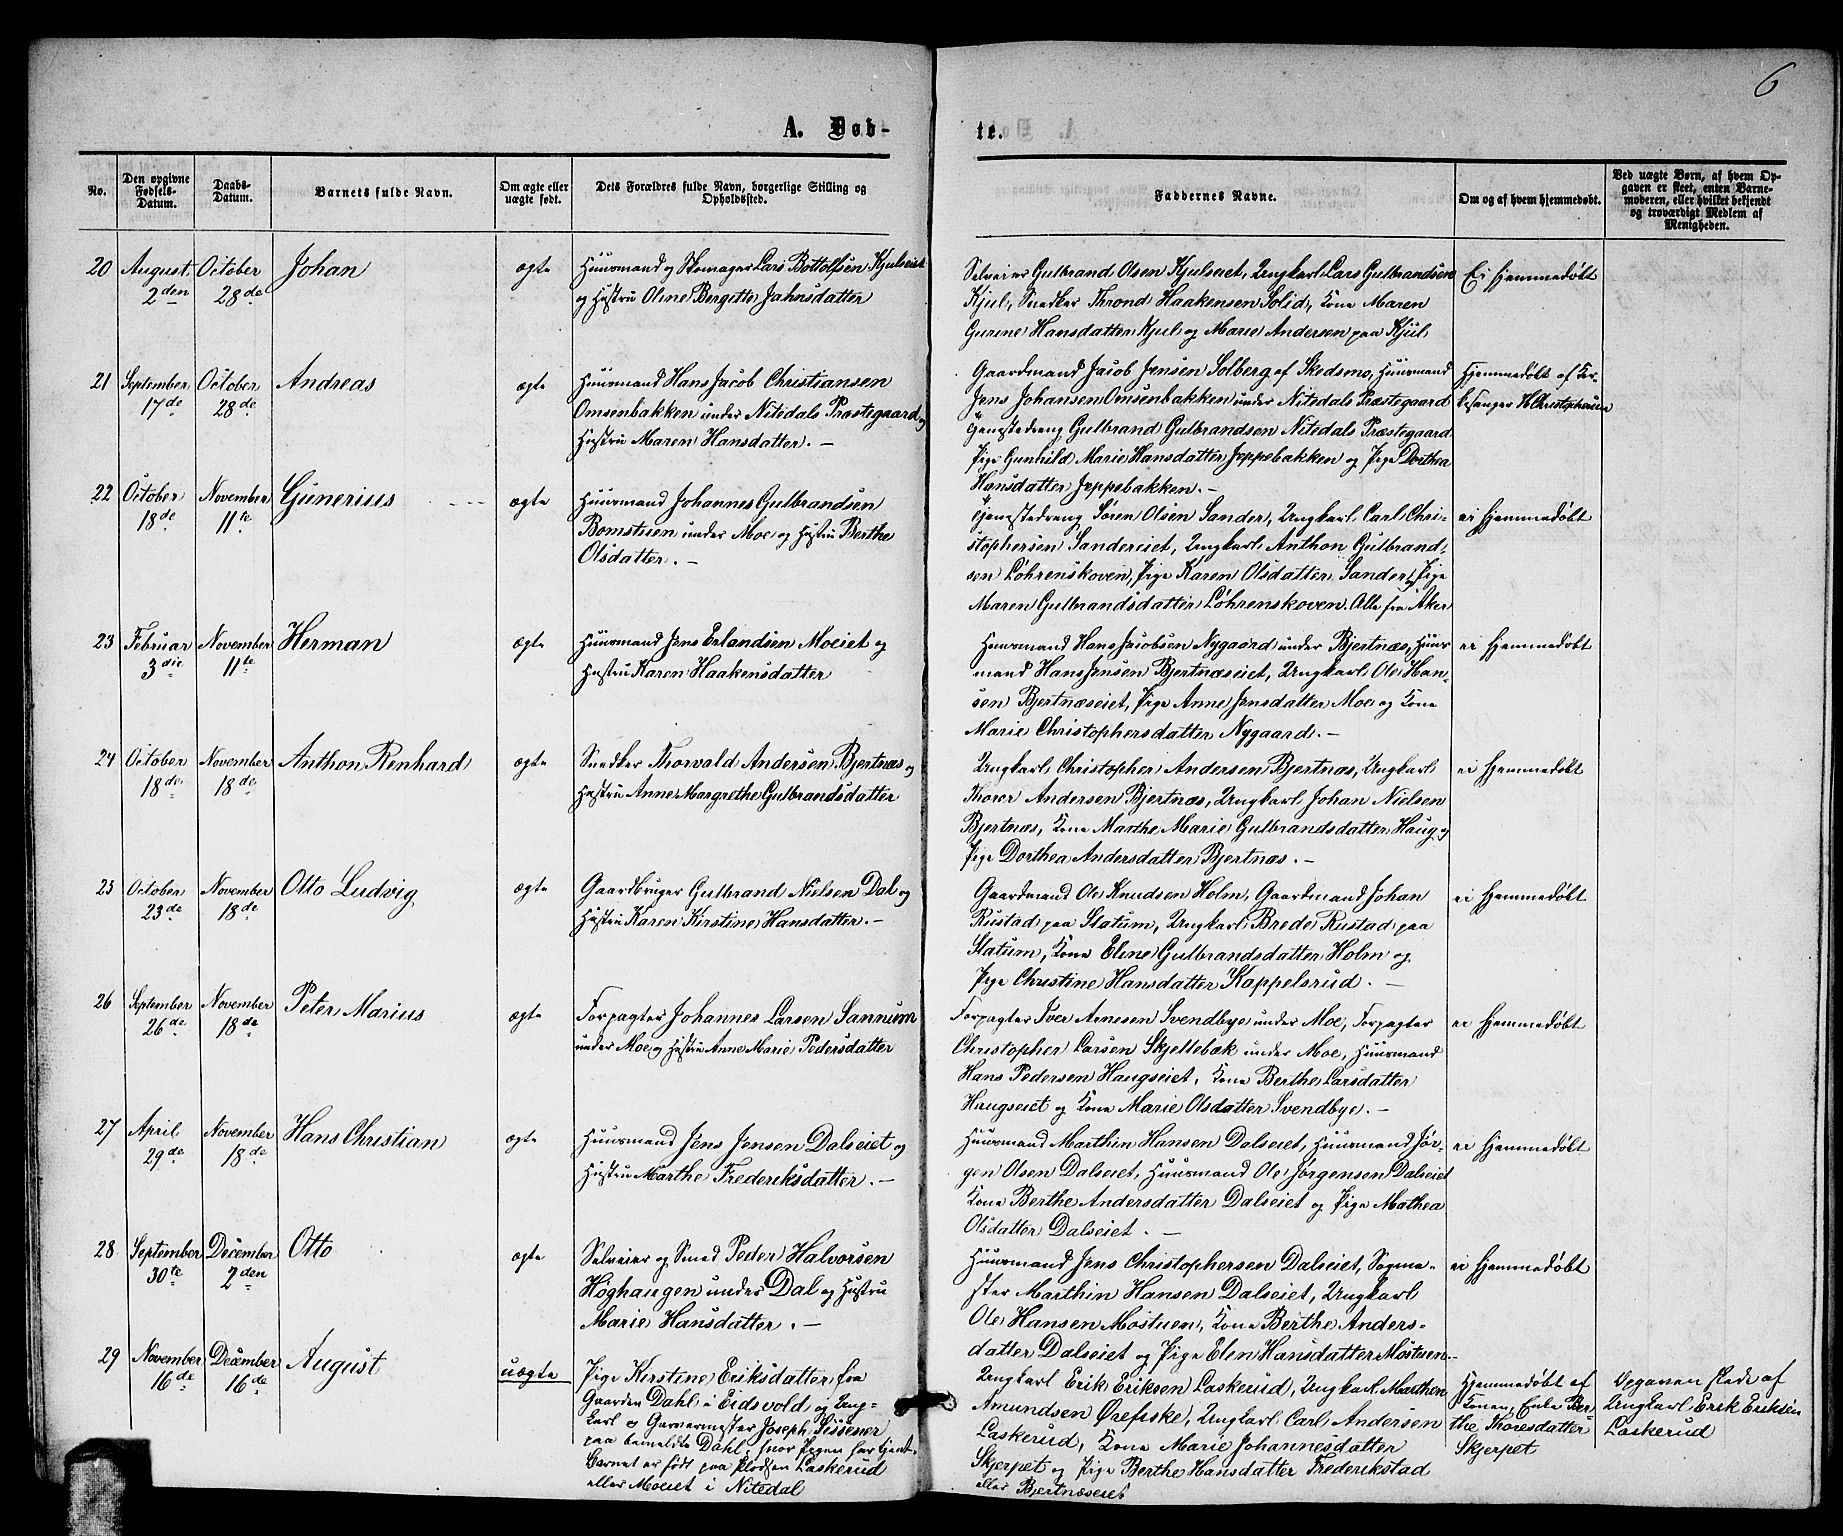 6
A. Døb-
te.
No.
Den opgivne Fødsels-Datum.
Daabs-Datum.
Barnets fulde Navn.
Om ægte eller uægte født.
Dets Forældres fulde Navn, borgerlige Stilling og Opholdssted.
Faddernes Navne.
Om og af hvem hjemmedøbt.
Ved uægte Børn, af hvem Opgaven er skeet, enten Barnemoderen, eller hvilket bekjendt og troværdigt Medlem af Menigheden.
20 August 2den October 28de Johan ægte
Huusmand og Skomager Lars Bottolfsen Kjulseiet
og Hustru Oline Bergette Jahnsdatter
Selveier Gulbrand Olsen Kjulseiet, Ungkarl Lars Gulbrandsen
Kjul, Snedker Thrond Haakensen Solid, Kone Maren
Gurine Hansdatter Kjul og Marie Andersen paa Kjul
Ei hjemmedøbt
21 September 17de October 28de Andreas ægte
Huusmand Hans Jacob Christiansen
Omsenbakken under Nitedals Præstegaard og
Hustru Maren Hansdatter. –
Gaardmand Jacob Jensen Solberg af Skedsmo, Huusmand
Jens Johansen Omsenbakken under Nitedals Præstegaard
Tjenestedreng Gulbrand Gulbrandsen Nitedals Præstegaard
Pige Gunhild Marie Hansdatter Jeppebakken og Pige Dorthea
Hansdatter Jeppebakken. –
Hjemmedøbt af Kir-
kesanger H. Christophersen
22 October 18de November 11te Gunerius ægte
Huusmand Johannes Gulbrandsen
Bomstuen under Moe og Hustru Berthe
Olsdatter. –
Tjenestedreng Søren Olsen Sander, Ungkarl Carl Chri-
stophersen Sandereiet, Ungkarl Anthon Gulbrand-
sen Løhrenskoven, Pige Karen Olsdatter Sander, Pige
Maren Gulbrandsdatter Løhrenskoven. Alle fra Aker
ei hjemmedøbt
23 Februar 3die November 11te Herman ægte
Huusmand Jens Erlandsen Moeiet og
Hustru Karen Haakensdatter
Huusmand Hans Jacobsen Nygaard under Bjertnæs, Huus-
mand Hans Jensen Bjertnæseiet, Ungkarl Ole Han-
sen Bjertnæseiet, Pige Anne Jensdatter Moe og Kone
Marie Christophersdatter Nygaard. –
ei hjemmedøbt
24 October 18de November 18de Anthon Renhard ægte
Snedker Thorvald Andersen Bjertnæs og
Hustru Anne Margrethe Gulbrandsdatter
Ungkarl Christopher Andersen Bjertnæs, Ungkarl
Thorer Andersen Bjertnæs, Ungkarl Johan Nielsen
Bjertnæs, Kone Marthe Marie Gulbrandsdatter Haug og
Pige Dorthea Andersdatter Bjertnæs. –
ei hjemmedøbt
25 October 23de November 18de Otto Ludvig ægte
Gaardbruger Gulbrand Nielsen Dal og
Hustru Karen Kirstine Hansdatter. –
Gaardmand Ole Knudsen Holm, Gaardmand Johan
Rustad paa Slatum, Ungkarl Brede Rustad paa
Slatum, Kone Eline Gulbrandsdatter Holm og
Pige Christine Hansdatter Kappelsrud. –
ei hjemmedøbt
26 September 26de November 18de Peter Marius ægte
Forpagter Johannes Larsen Sannum
under Moe og Hustru Anne Marie Pedersdatter
Forpagter Iver Arnesen Svendbye under Moe, Forpagter
Christopher Larsen Skjellebæk under Moe, Huusmand
Hans Pedersen Haugseiet, Kone Berthe Larsdatter
Haugseiet og Kone Marie Olsdatter Svendbye. –
ei hjemmedøbt
27 April 29de November 18de Hans Christian ægte
Huusmand Jens Jensen Dalseiet og
Hustru Marthe Frederiksdatter. –
Huusmand Marthin Hansen Dalseiet, Huusmand Jør-
gen Olsen Dalseiet, Huusmand Ole Jørgensen Dalseiet
Kone Berthe Andersdatter Dalseiet og Pige Mathea
Olsdatter Dalseiet. –
ei hjemmedøbt
28 September 30te December 2den Otto ægte
Selveier og Smed Peder Halvorsen
Høghaugen under Dal og Hustru
Marie Hansdatter. –
Huusmand Jens Christophersen Dalseiet, Sagme-
ster Marthin Hansen Dalseiet, Ungkarl
Ole Hansen Mostuen, Kone Berthe Anders-
datter Dalseiet og Pige Elen Hansdatter Mostuen. –
ei hjemmedøbt
29 November 16de December 16de August uægte
Pige Kirstine Eriksdatter fra
Gaarden Dahl i Eidsvold og Ung-
karl og Garvermester Joseph Tissener
paa bemeldte Dahl, hvor Pigen har tjent.
Barnet er født paa Pladsen Laskerud
eller Moeiet i Nitedal
Ungkarl Erik Eriksen Laskerud, Ungkarl Marthin
Amundsen Ørefiske, Ungkarl Carl Andersen
Laskerud, Kone Marie Johannesdatter
Skjerpet og Pige Berthe Hansdatter Frederikstad
eller Bjertnæseiet
Hjemmedøbt af
Konen, Enke Ber-
the Thoresdatter
Skjerpet
Opgaven skede af
Ungkarl Erik Eriksen
Laskerud